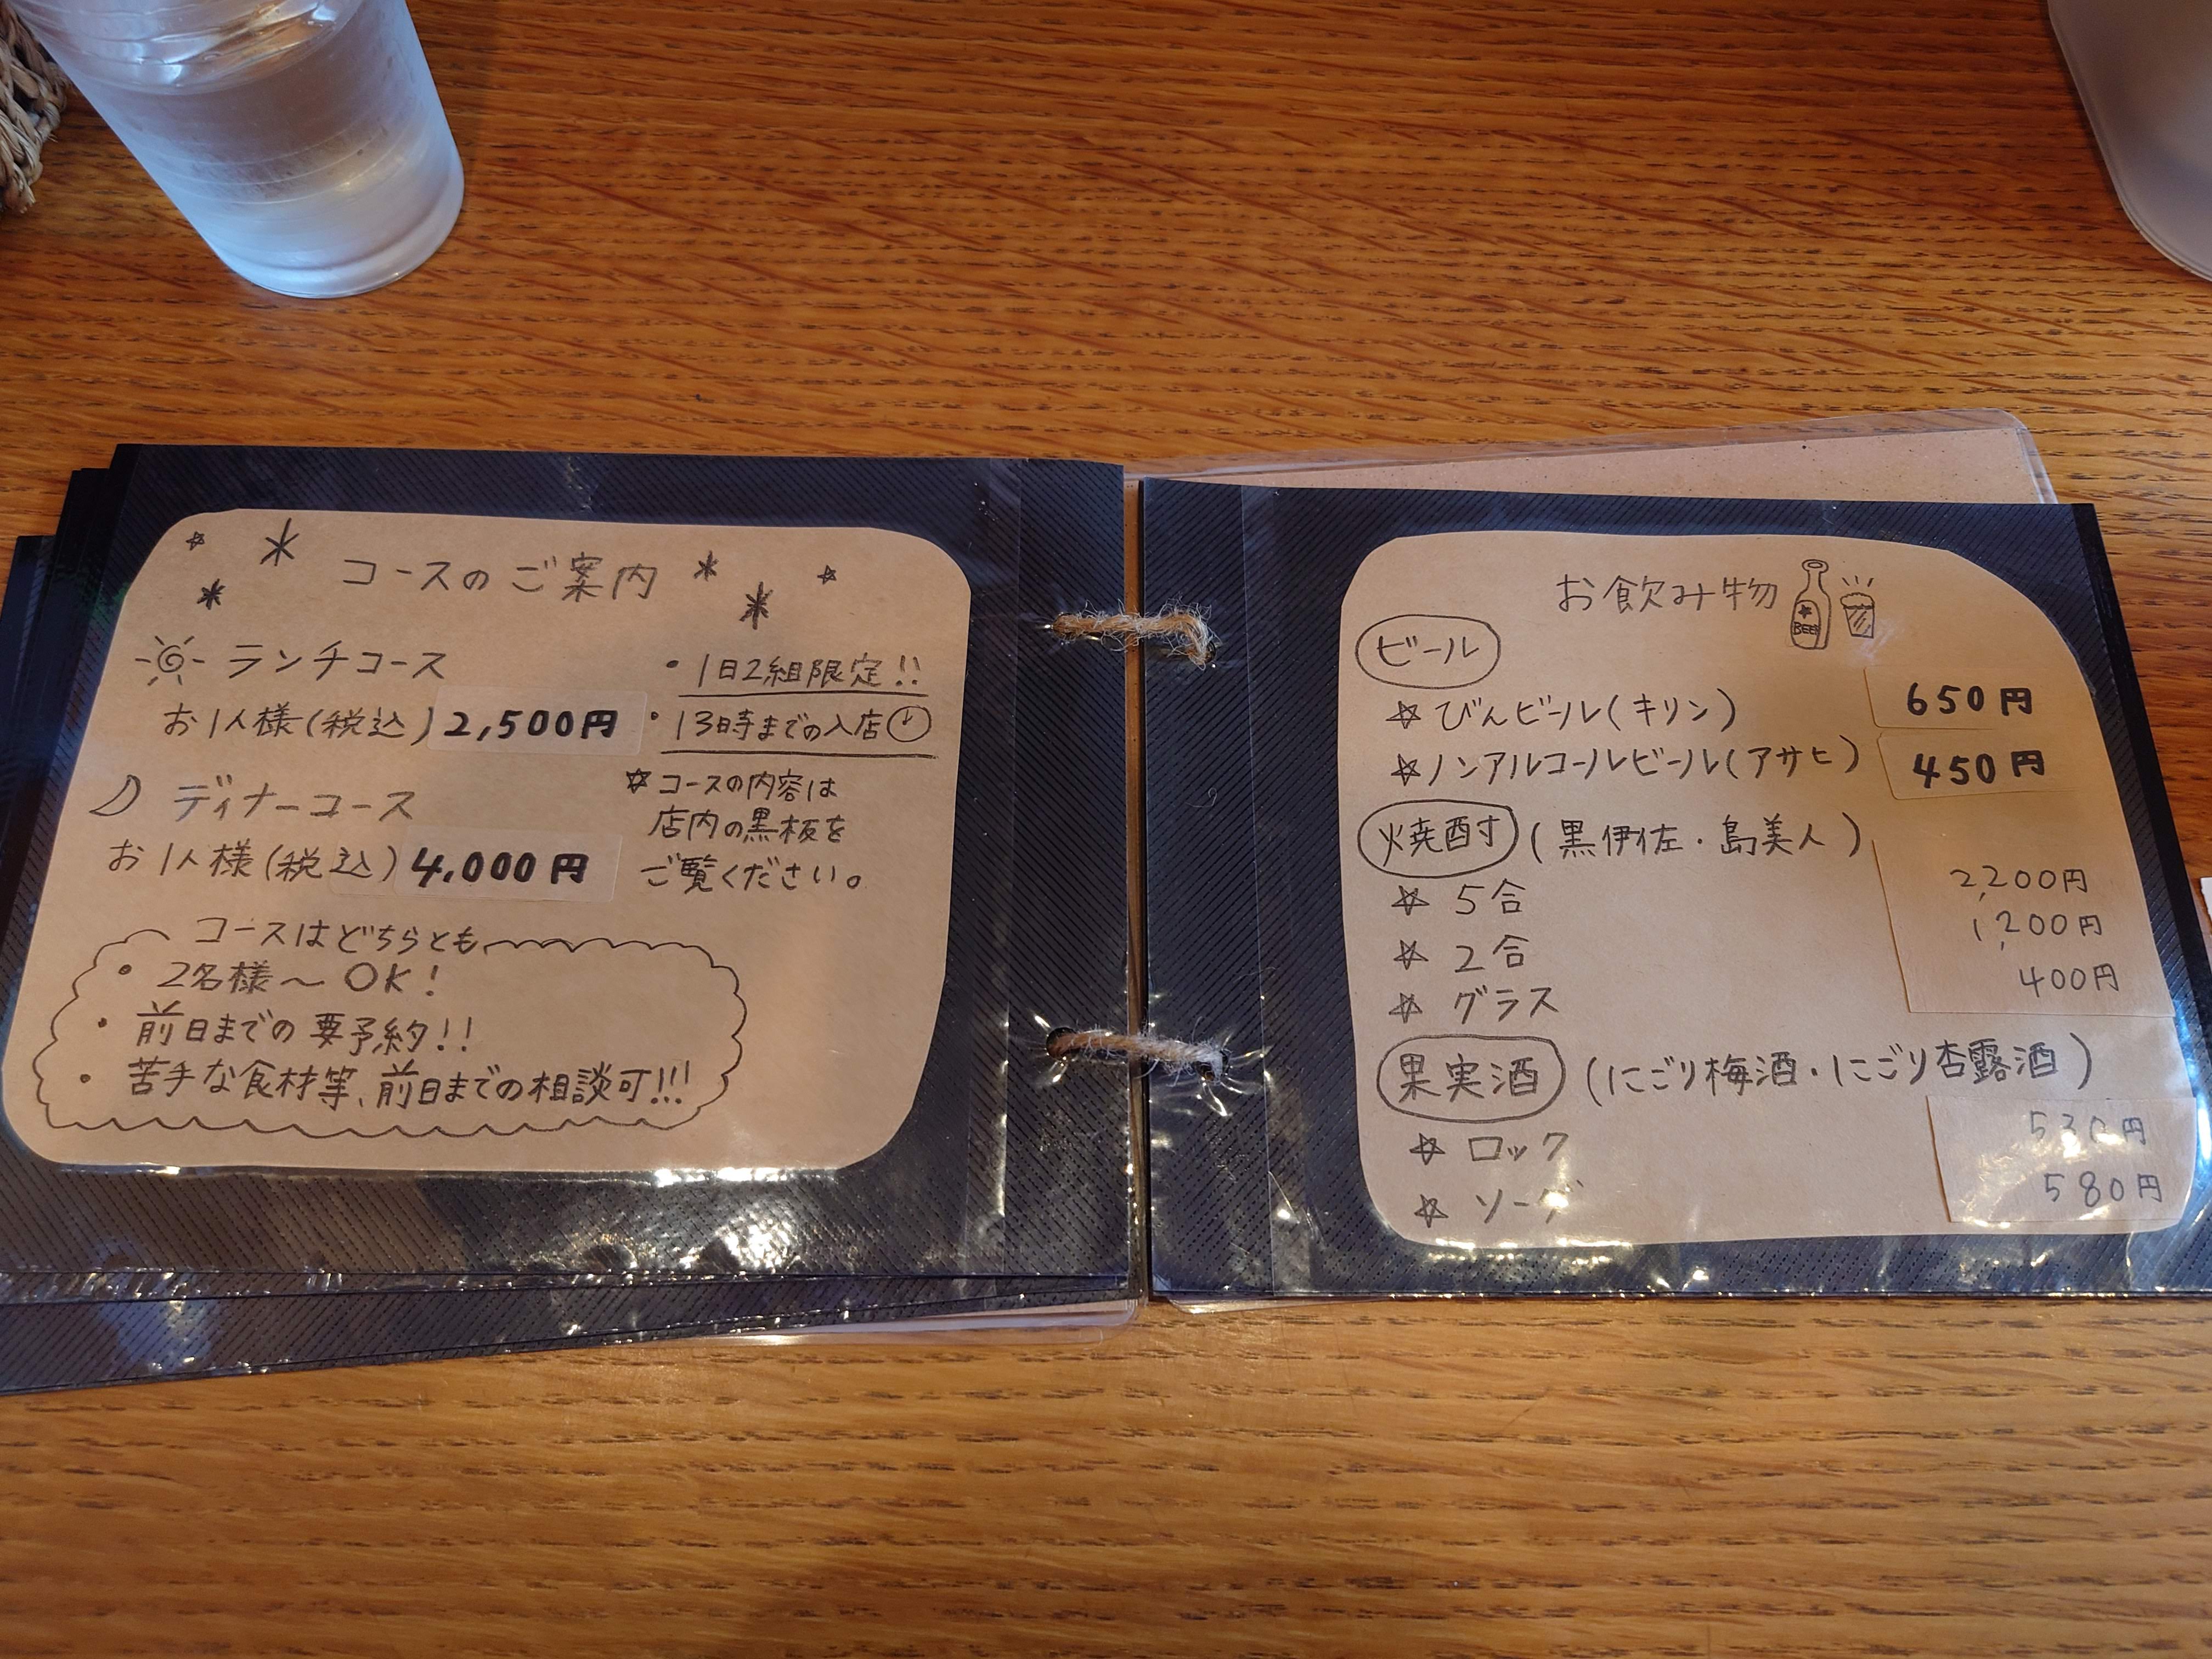 コースのご案内
ランチコース
お1人様(税込)2,500円
・1日2組限定!!
・13時までの入店
ディナーコース
お1人様(税込)4,000円
☆コースの内容は
店内の黒板を
ご覧ください。
コースはどちらとも
・2名様〜OK!
・前日までの要予約!!
・苦手な食材等、前日までの相談可!!!
お飲み物
BEER
ビール
☆びんビール(キリン) 650円
☆ノンアルコールビール(アサヒ) 450円
焼酎(黒伊佐・島美人)
☆5合 2,200円
☆2合 1,200円
☆グラス 400円
果実酒(にごり梅酒・にごり杏露酒)
☆ロック 530円
☆ソーダ 580円